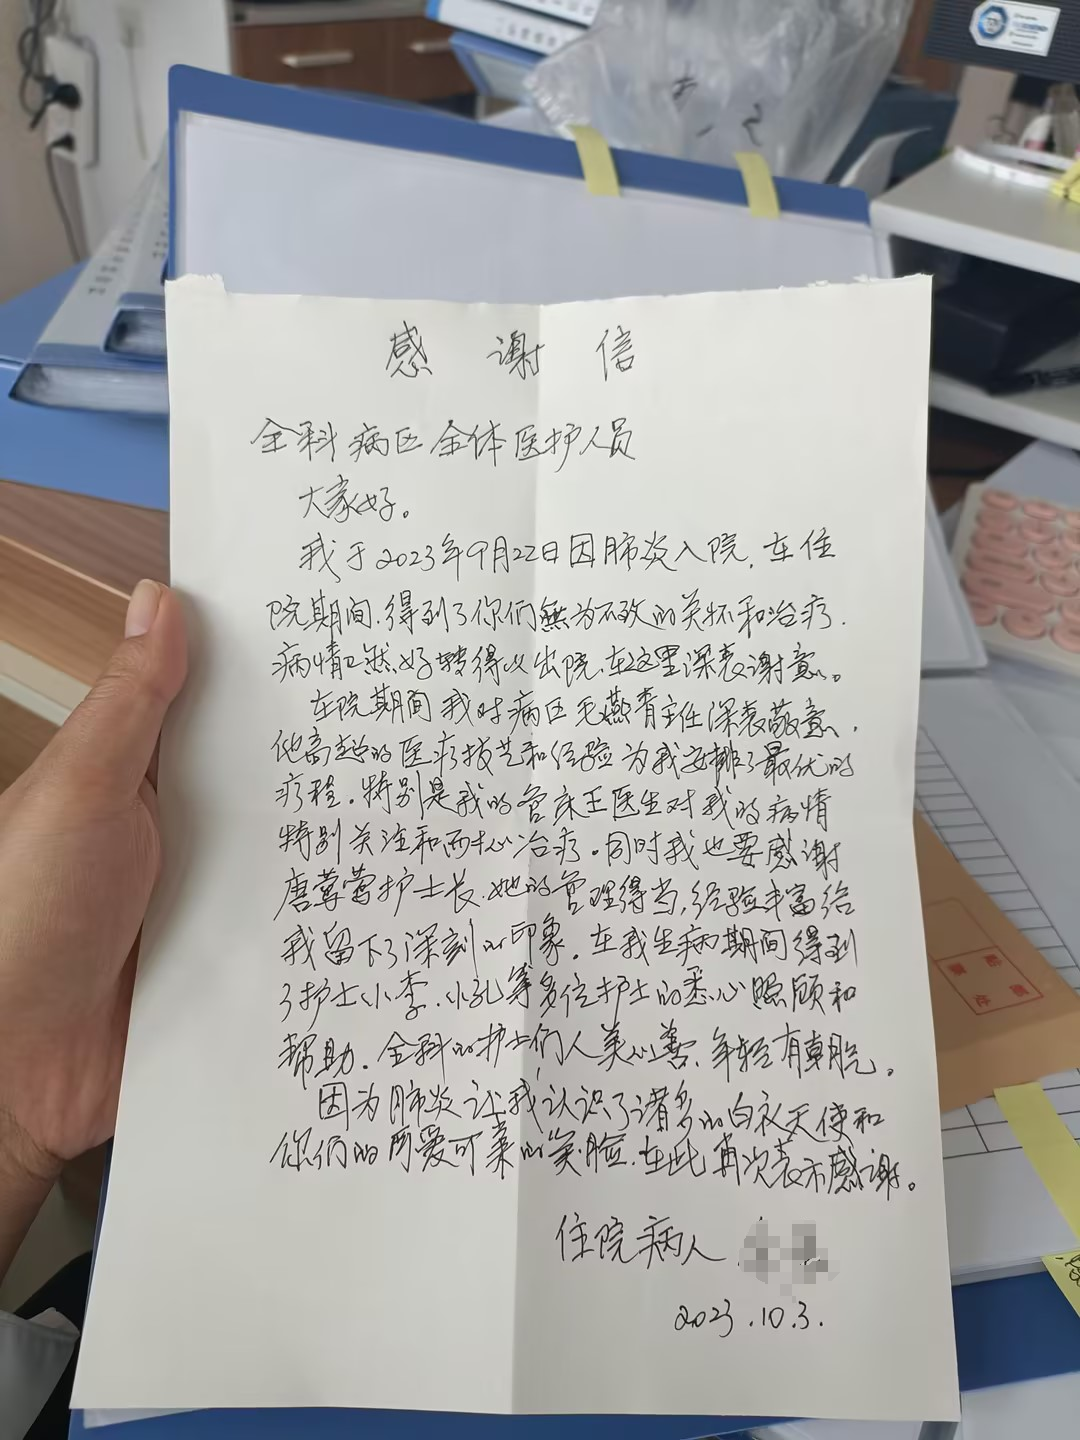 感谢信
全科病区全体医护人员
大家好。
我于2023年9月22日因肺炎入院，在住
院期间，得到了你们無为不致的关怀和治疗，
病情已然好转得以出院，在这里深表谢意。
在院期间我对病区毛燕青主任深表敬意，
他高超的医疗技艺和经验为我安排了最优的
疗程。特别是我的管床王医生对我的病情
特别关注和耐心治疗。同时我也要感谢
唐莺莺护士长，她的管理得当，经验丰富给
我留下了深刻的印象。在我生病期间得到
了护士小李、小孔等多位护士的悉心照顾和
帮助。全科的护士们人美心善、年轻有朝气。
因为肺炎让我认识了诸多的白衣天使和
你们的可爱可亲的笑脸，在此再次表示感谢。
住院病人
2023.10.3.